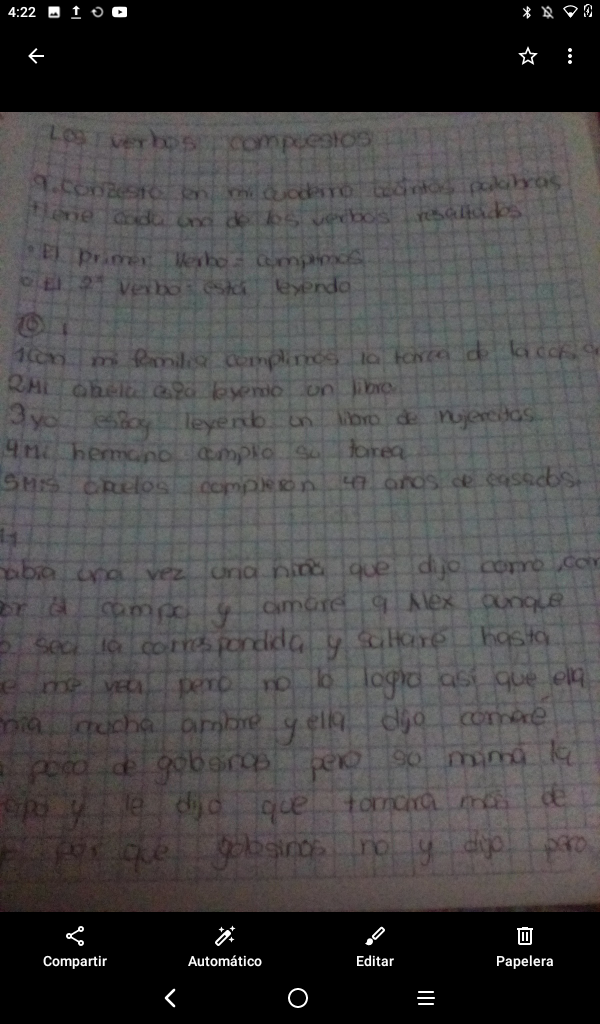 4:22
Los verbos compuestos
9. contesto en mi cuaderno cuantas palabras
tiene cada uno de los verbos resaltados
El primer verbo = cumplimos
El 2° verbo = está leyendo
10
1 Con mi familia complimos la tarea de la casa
2 Mi abuela esta leyendo un libro
3 yo estoy leyendo un libro de mujercitas
4 Mi hermano complio su tarea
5 Mis abuelos complieron 47 años de casados.
11
abia una vez una niña que dijo como
el campo y amaré a Alex aunque
sea la correspondida y saltaré hasta
me vea pero no lo logro asi que ella
mucha ambre y ella dijo comeré
poco de gobsinas pero so mamá la
y le dijo que tomara mas de
por que gobsinas no y dijo pero
Compartir
Automático
Editar
Papelera